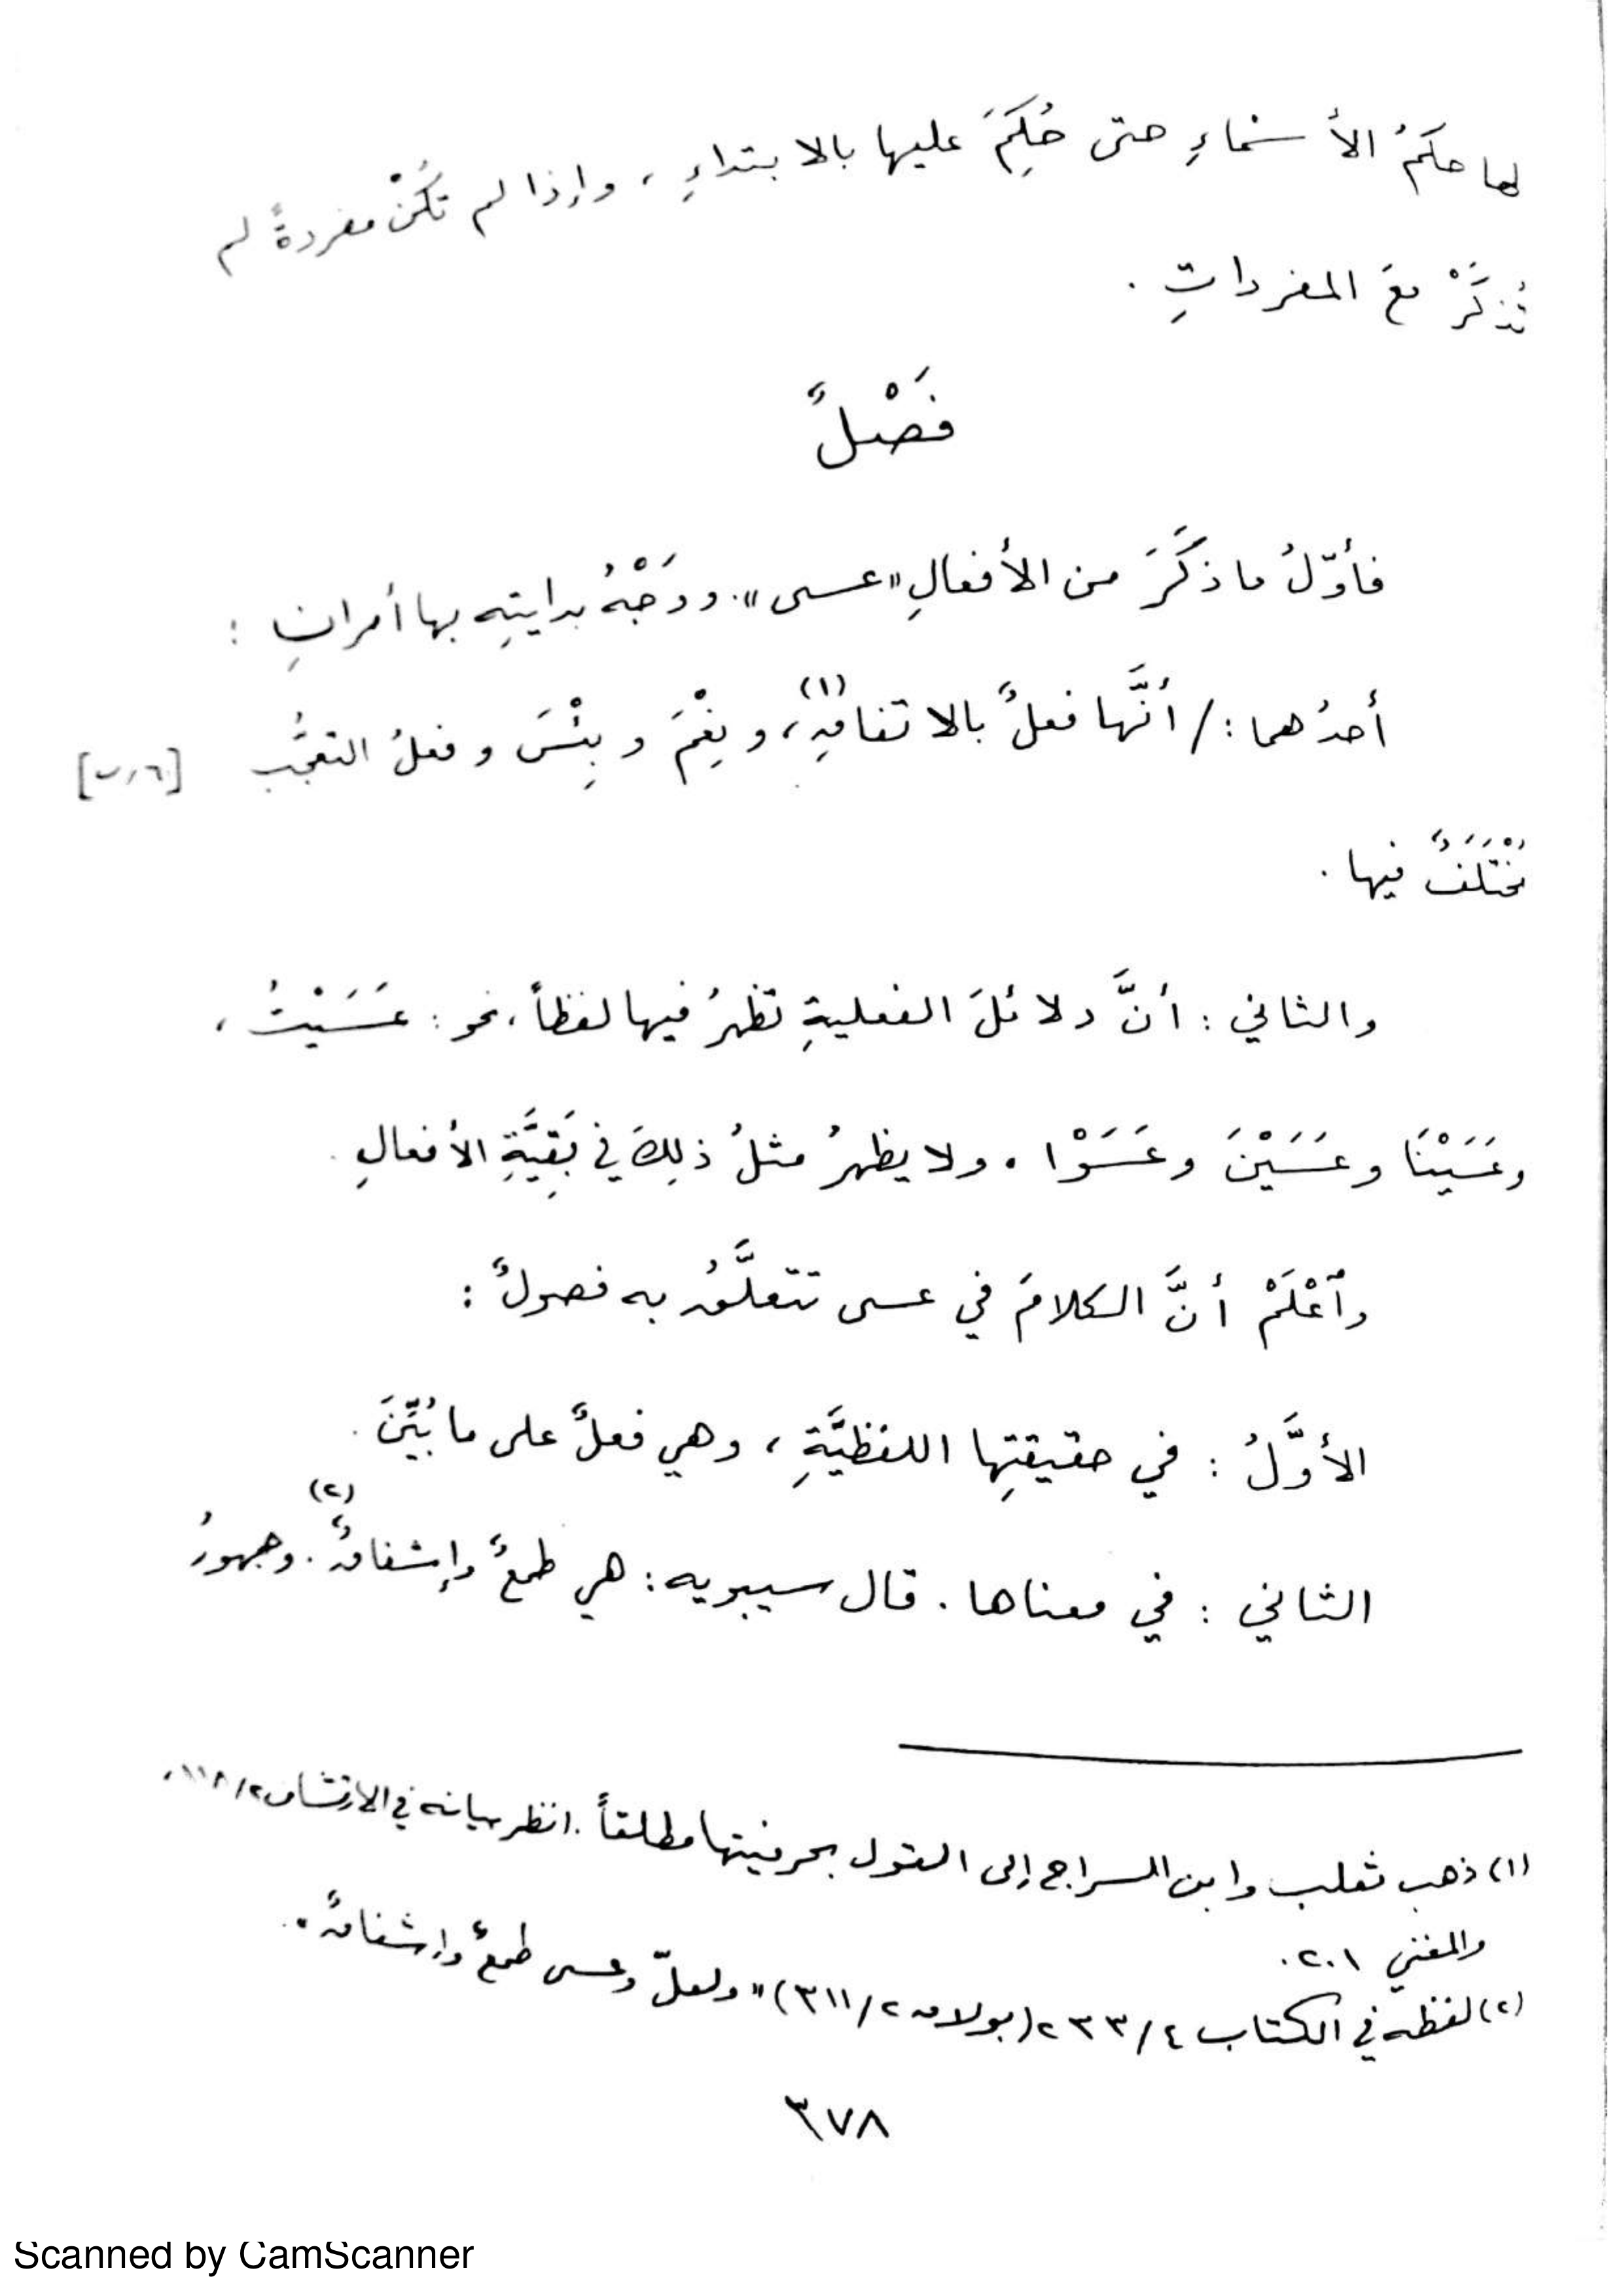 لها حكمُ الأسماءِ حتى حُكِمَ عليها بالابتداءِ ، وإذا لم تكُنْ مفردةً لم
تُذكَرْ معَ المفرداتِ .
فَصْلٌ
فأوّلُ ما ذكَرَ من الأفعالِ "عسى". ووَجْهُ بدايتِه بها أمرانِ :
أحدُهما : / أنَّها فعلٌ بالاتفاقِ(١)، ونِعْمَ وبِئْسَ وفعلُ التعجُّب
مُخْتَلَفٌ فيها .
والثاني : أنَّ دلائلَ الفعليةِ تظهرُ فيها لفظاً ، نحو : عَسَيْتُ ،
وعَسَيْنَا وعَسَيْنَ وعَسَوْا . ولا يظهرُ مثلُ ذلِكَ في بَقِيَّةِ الأفعالِ .
وٱعْلَمْ أنَّ الكلامَ في عسى تتعلَّقُ به فصولٌ :
الأوَّلُ : في حقيقتِها اللفظيَّةِ ، وهي فعلٌ على ما بُيِّنَ .
الثاني : في معناها . قال سيبويه : هي طمعٌ وإشفاقٌ(٢). وجمهورُ
(١) ذهب ثعلب وابن السراج إلى القول بحرفيتها مطلقاً . انظر بيانه في الارتشاف ١١٨/٢،
والمغني ٢٠١.
(٢) لفظه في الكتاب ٢٣٣/٤ (بولاق ٣١١/٢) "ولعلّ وعسى طمعٌ وإشفاقٌ .
٣٧٨
Scanned by CamScanner